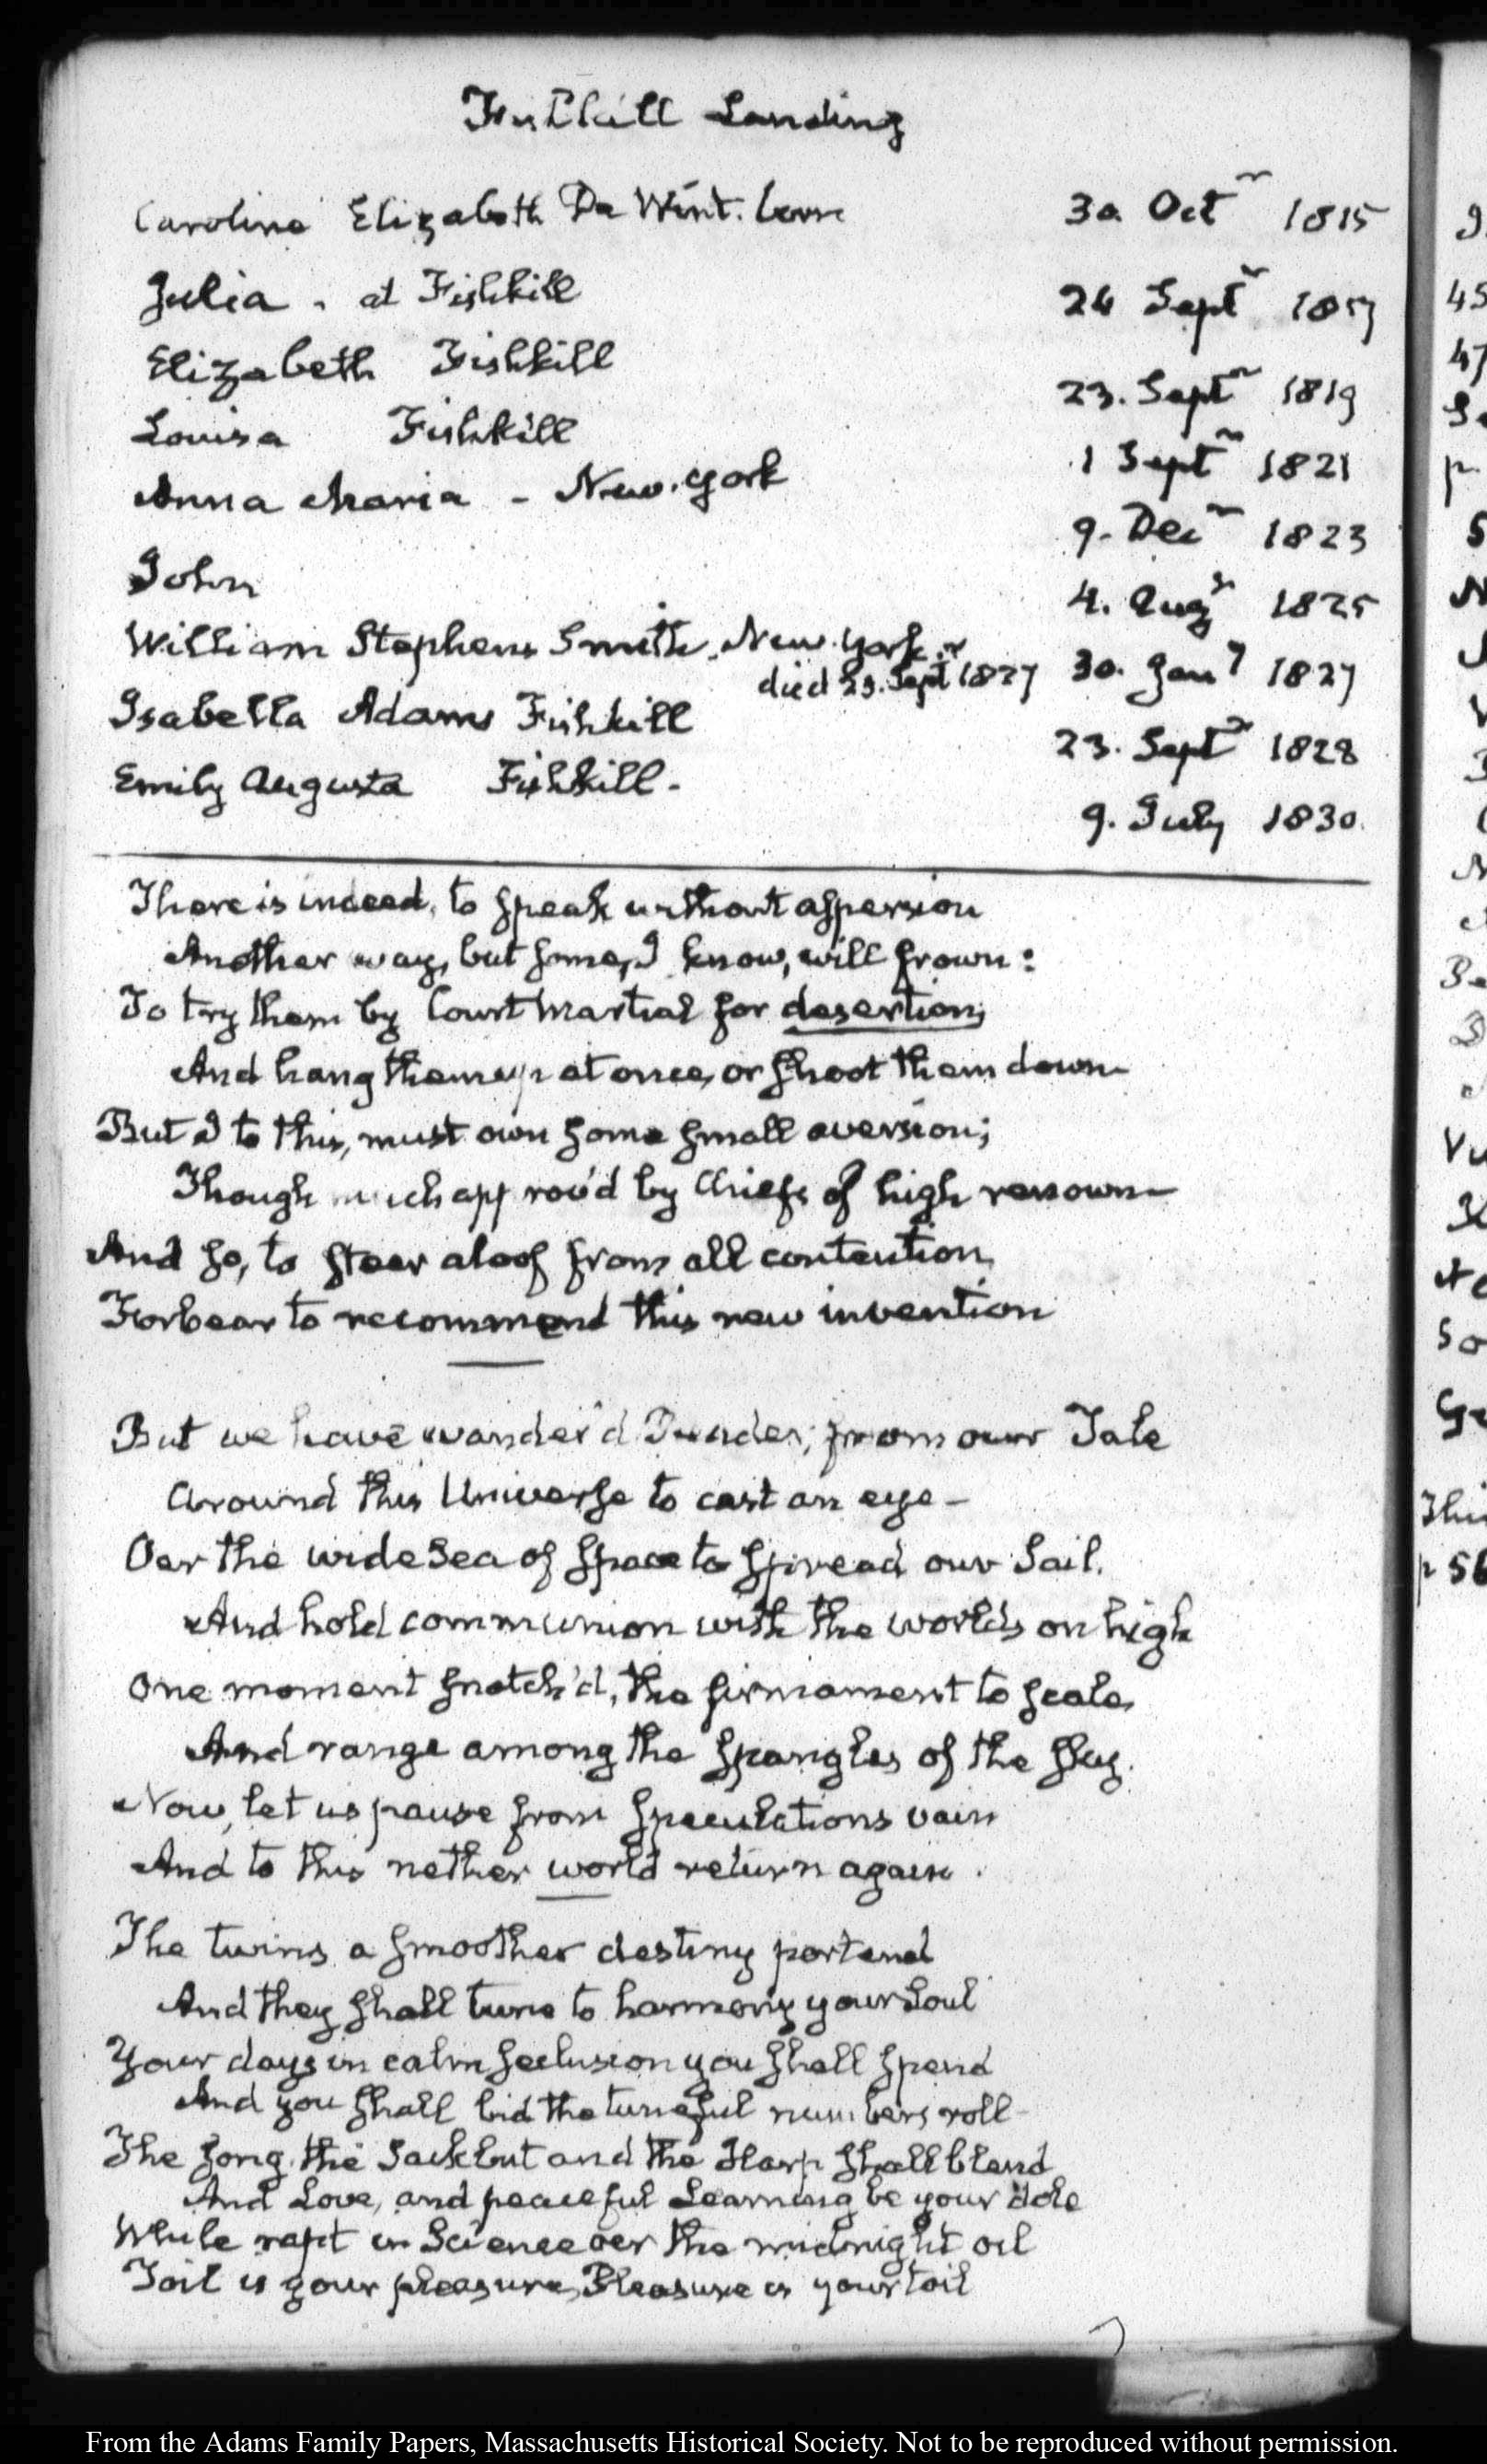 Fishkill Landing
Caroline Elizabeth De Wint. born 30. Oct 1815
Julia - at Fishkill 24 Sept 1817
Elizabeth Fishkill 23. Sept 1819
Louisa Fishkill 1 Sept 1821
Anna Maria - New-York 9. Dec 1823
John 4. Aug 1825
William Stephens Smith. New-York.
died 23. Sept 1827 30. Jany 1827
Isabella Adams Fishkill 23. Sept 1828
Emily Augusta Fishkill - 9. July 1830.
There is indeed, to speak without aspersion
Another way, but some, I know, will frown:
To try them by Court Martial for desertion;
And hang them up at once, or shoot them down
But I to this, must own some small aversion;
Though much approv'd by Chiefs of high renown
And so, to steer aloof from all contention,
Forbear to recommend this new invention
But we have wander'd Reader, from our Tale
Around this Universe to cast an eye -
Oer the wide Sea of Space to spread our Sail.
And hold communion with the worlds on high
One moment snatch'd, the firmament to scale,
And range among the spangles of the sky.
Now, let us pause from speculations vain
And to this nether world return again.
The twins a smoother destiny portend
And they shall tune to harmony your Soul
Your days in calm seclusion you shall spend
And you shall bid the tuneful numbers roll
The song, the Sackbut and the Harp shall blend
And Love, and peaceful Learning be your dole
While rapt in Science oer the midnight oil
Toil is your pleasure, Pleasure is your toil
9.
45
47
p.
S
N
Vu
So
Thi
p 56
From the Adams Family Papers, Massachusetts Historical Society. Not to be reproduced without permission.